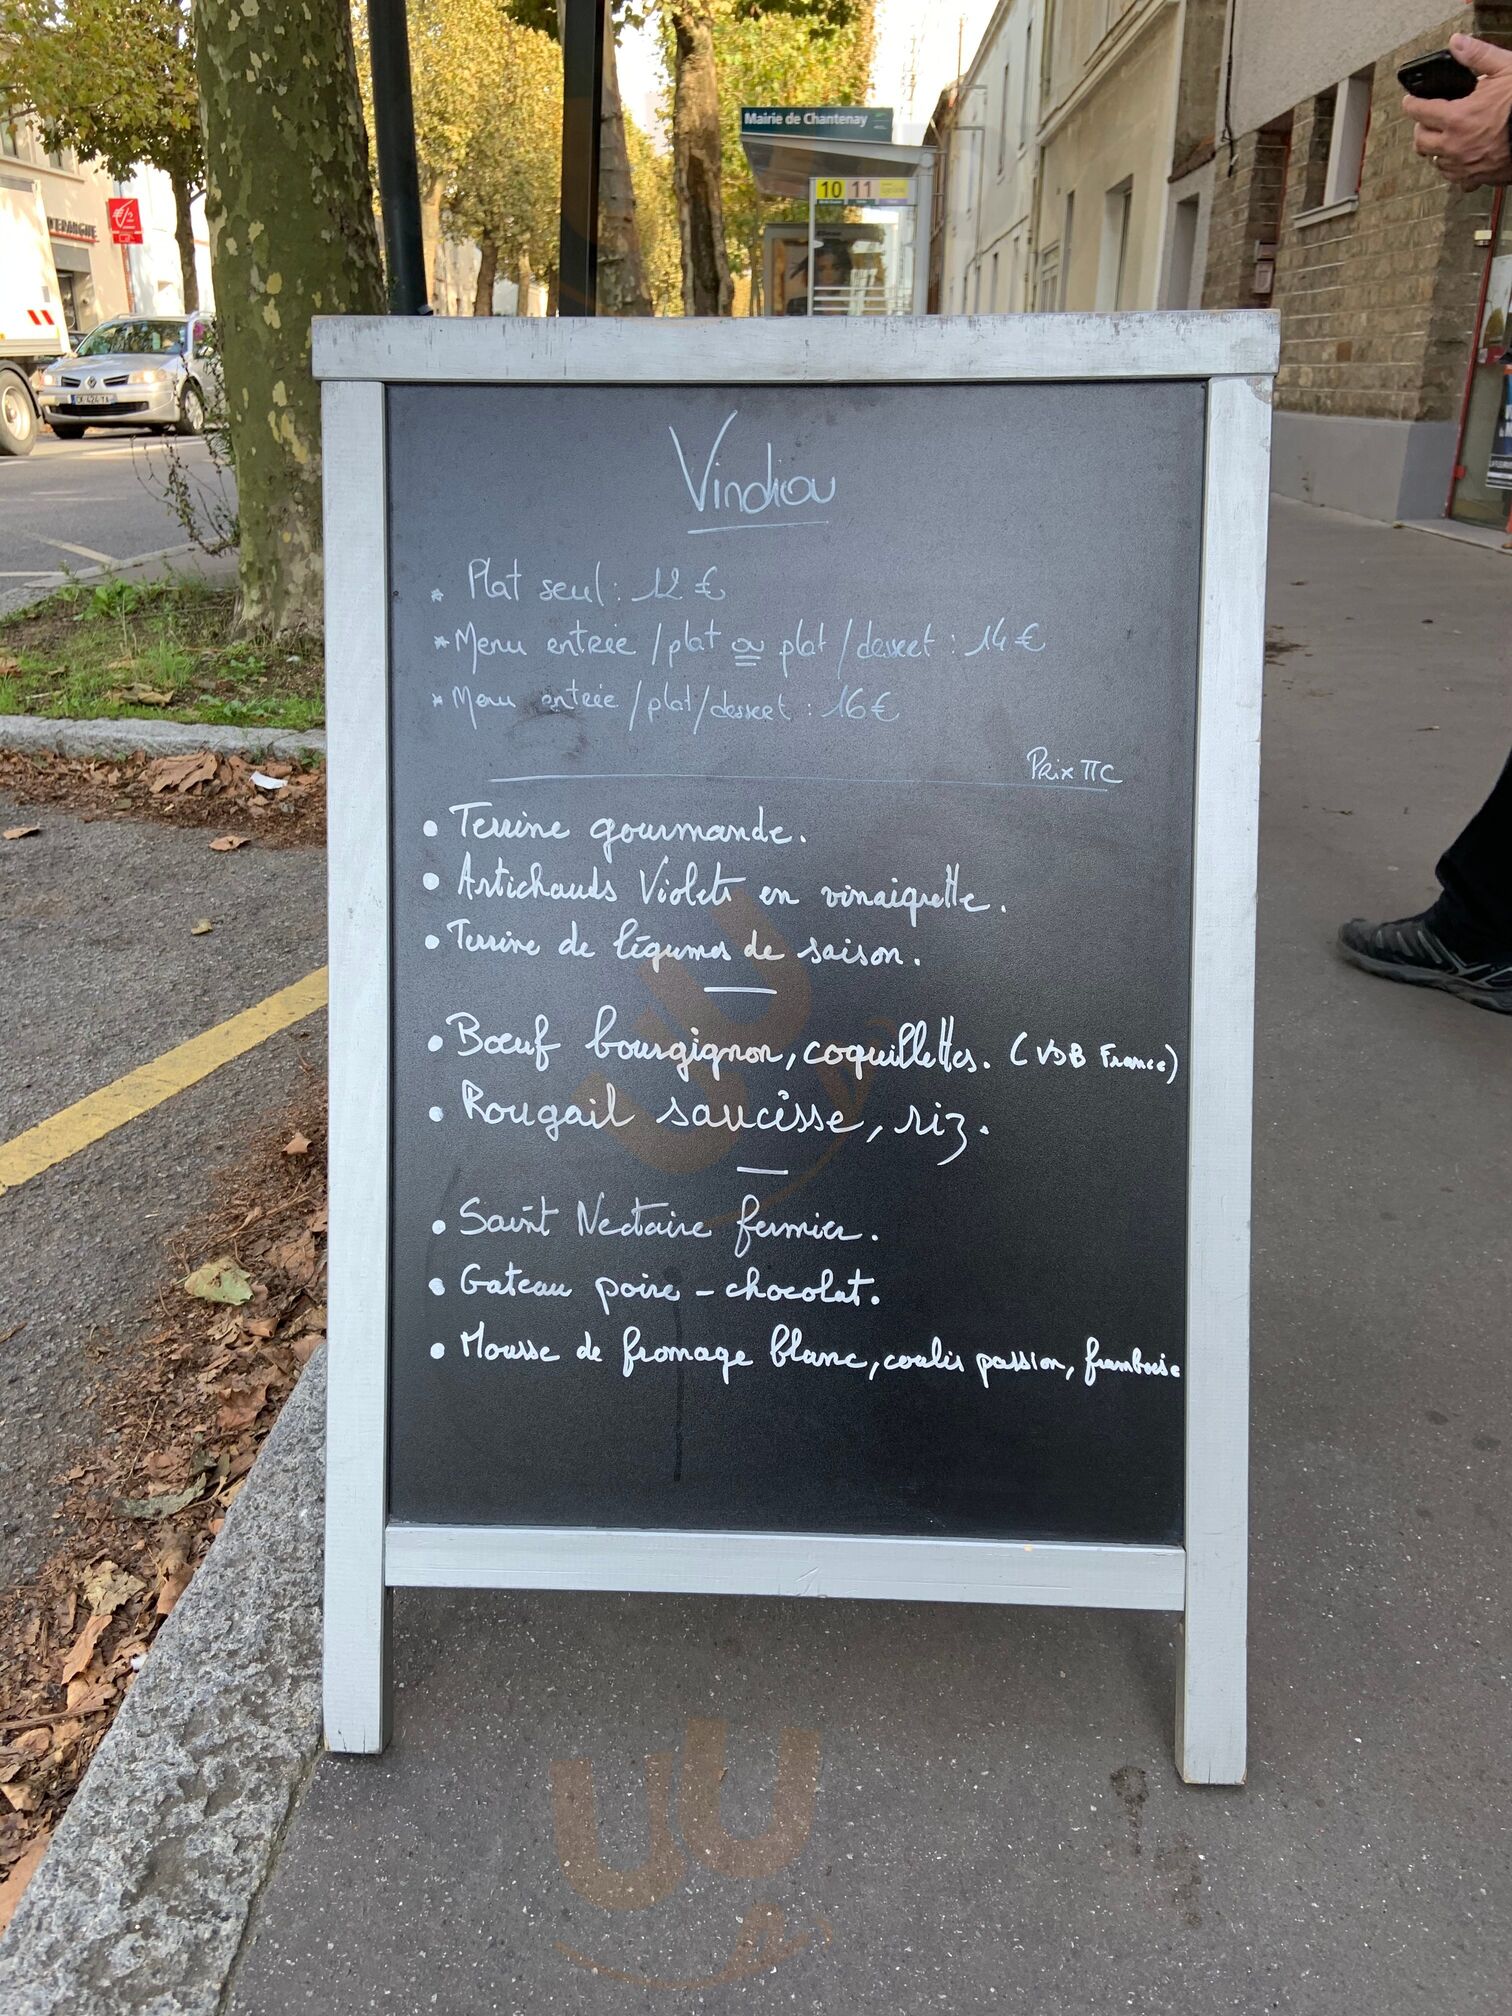 Mairie de Chantenay
10 11
D'EPARGNE
CK-424-TA
Vindiou
* Plat seul : 12 €
* Menu entrée / plat ou plat / dessert : 14 €
* Menu entrée / plat / dessert : 16 €
Prix TTC
• Terrine gourmande.
• Artichauds Violets en vinaigrette.
• Terrine de légumes de saison.
• Bœuf bourgignon, coquillettes. (VDB France)
• Rougail saucisse, riz.
• Saint Nectaire fermier.
• Gateau poire - chocolat.
• Mousse de fromage blanc, coulis passion, framboise.